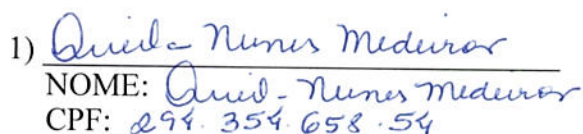 1) Nunes Medeiros
NOME: Nunes Medeiros
CPF: 294.354.658.54